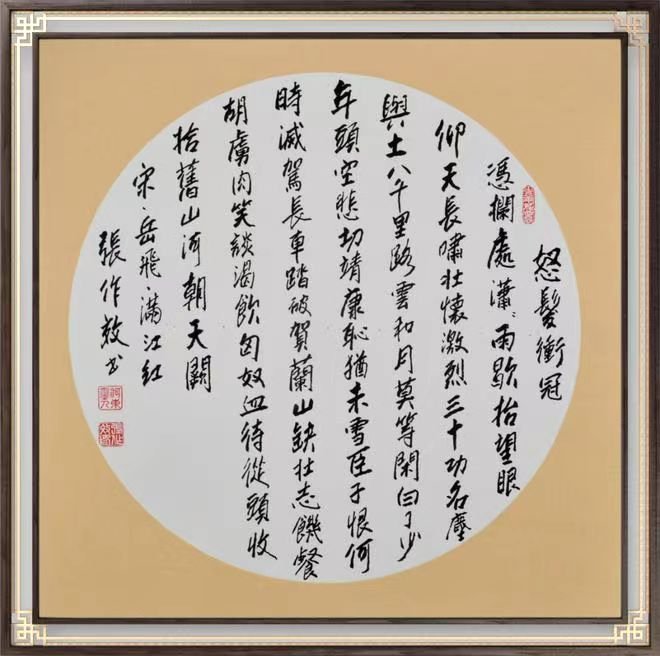 怒髮衝冠
憑欄處瀟、雨歇抬望眼
仰天長嘯壯懷激烈三十功名塵
與土八千里路雲和月莫等閑白了少
年頭空悲切靖康恥猶未雪臣子恨何
時滅駕長車踏破賀蘭山缺壯志饑餐
胡虜肉笑談渴飲匈奴血待從頭收
拾舊山河朝天闕
宋、岳飛、滿江紅
張作书